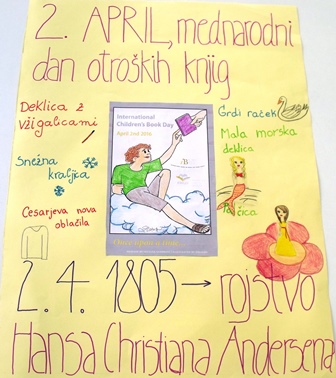 2. APRIL, mednarodni
dan otroških knjig
Deklica z
vžigalicami
Snežna
kraljica
Cesarjeva nova
oblačila
International
Children's Book Day
April 2nd 2016
Grdi raček
Mala morska
deklica
Palčica
2. 4. 1805 → rojstvo
Hansa Christiana Andersena